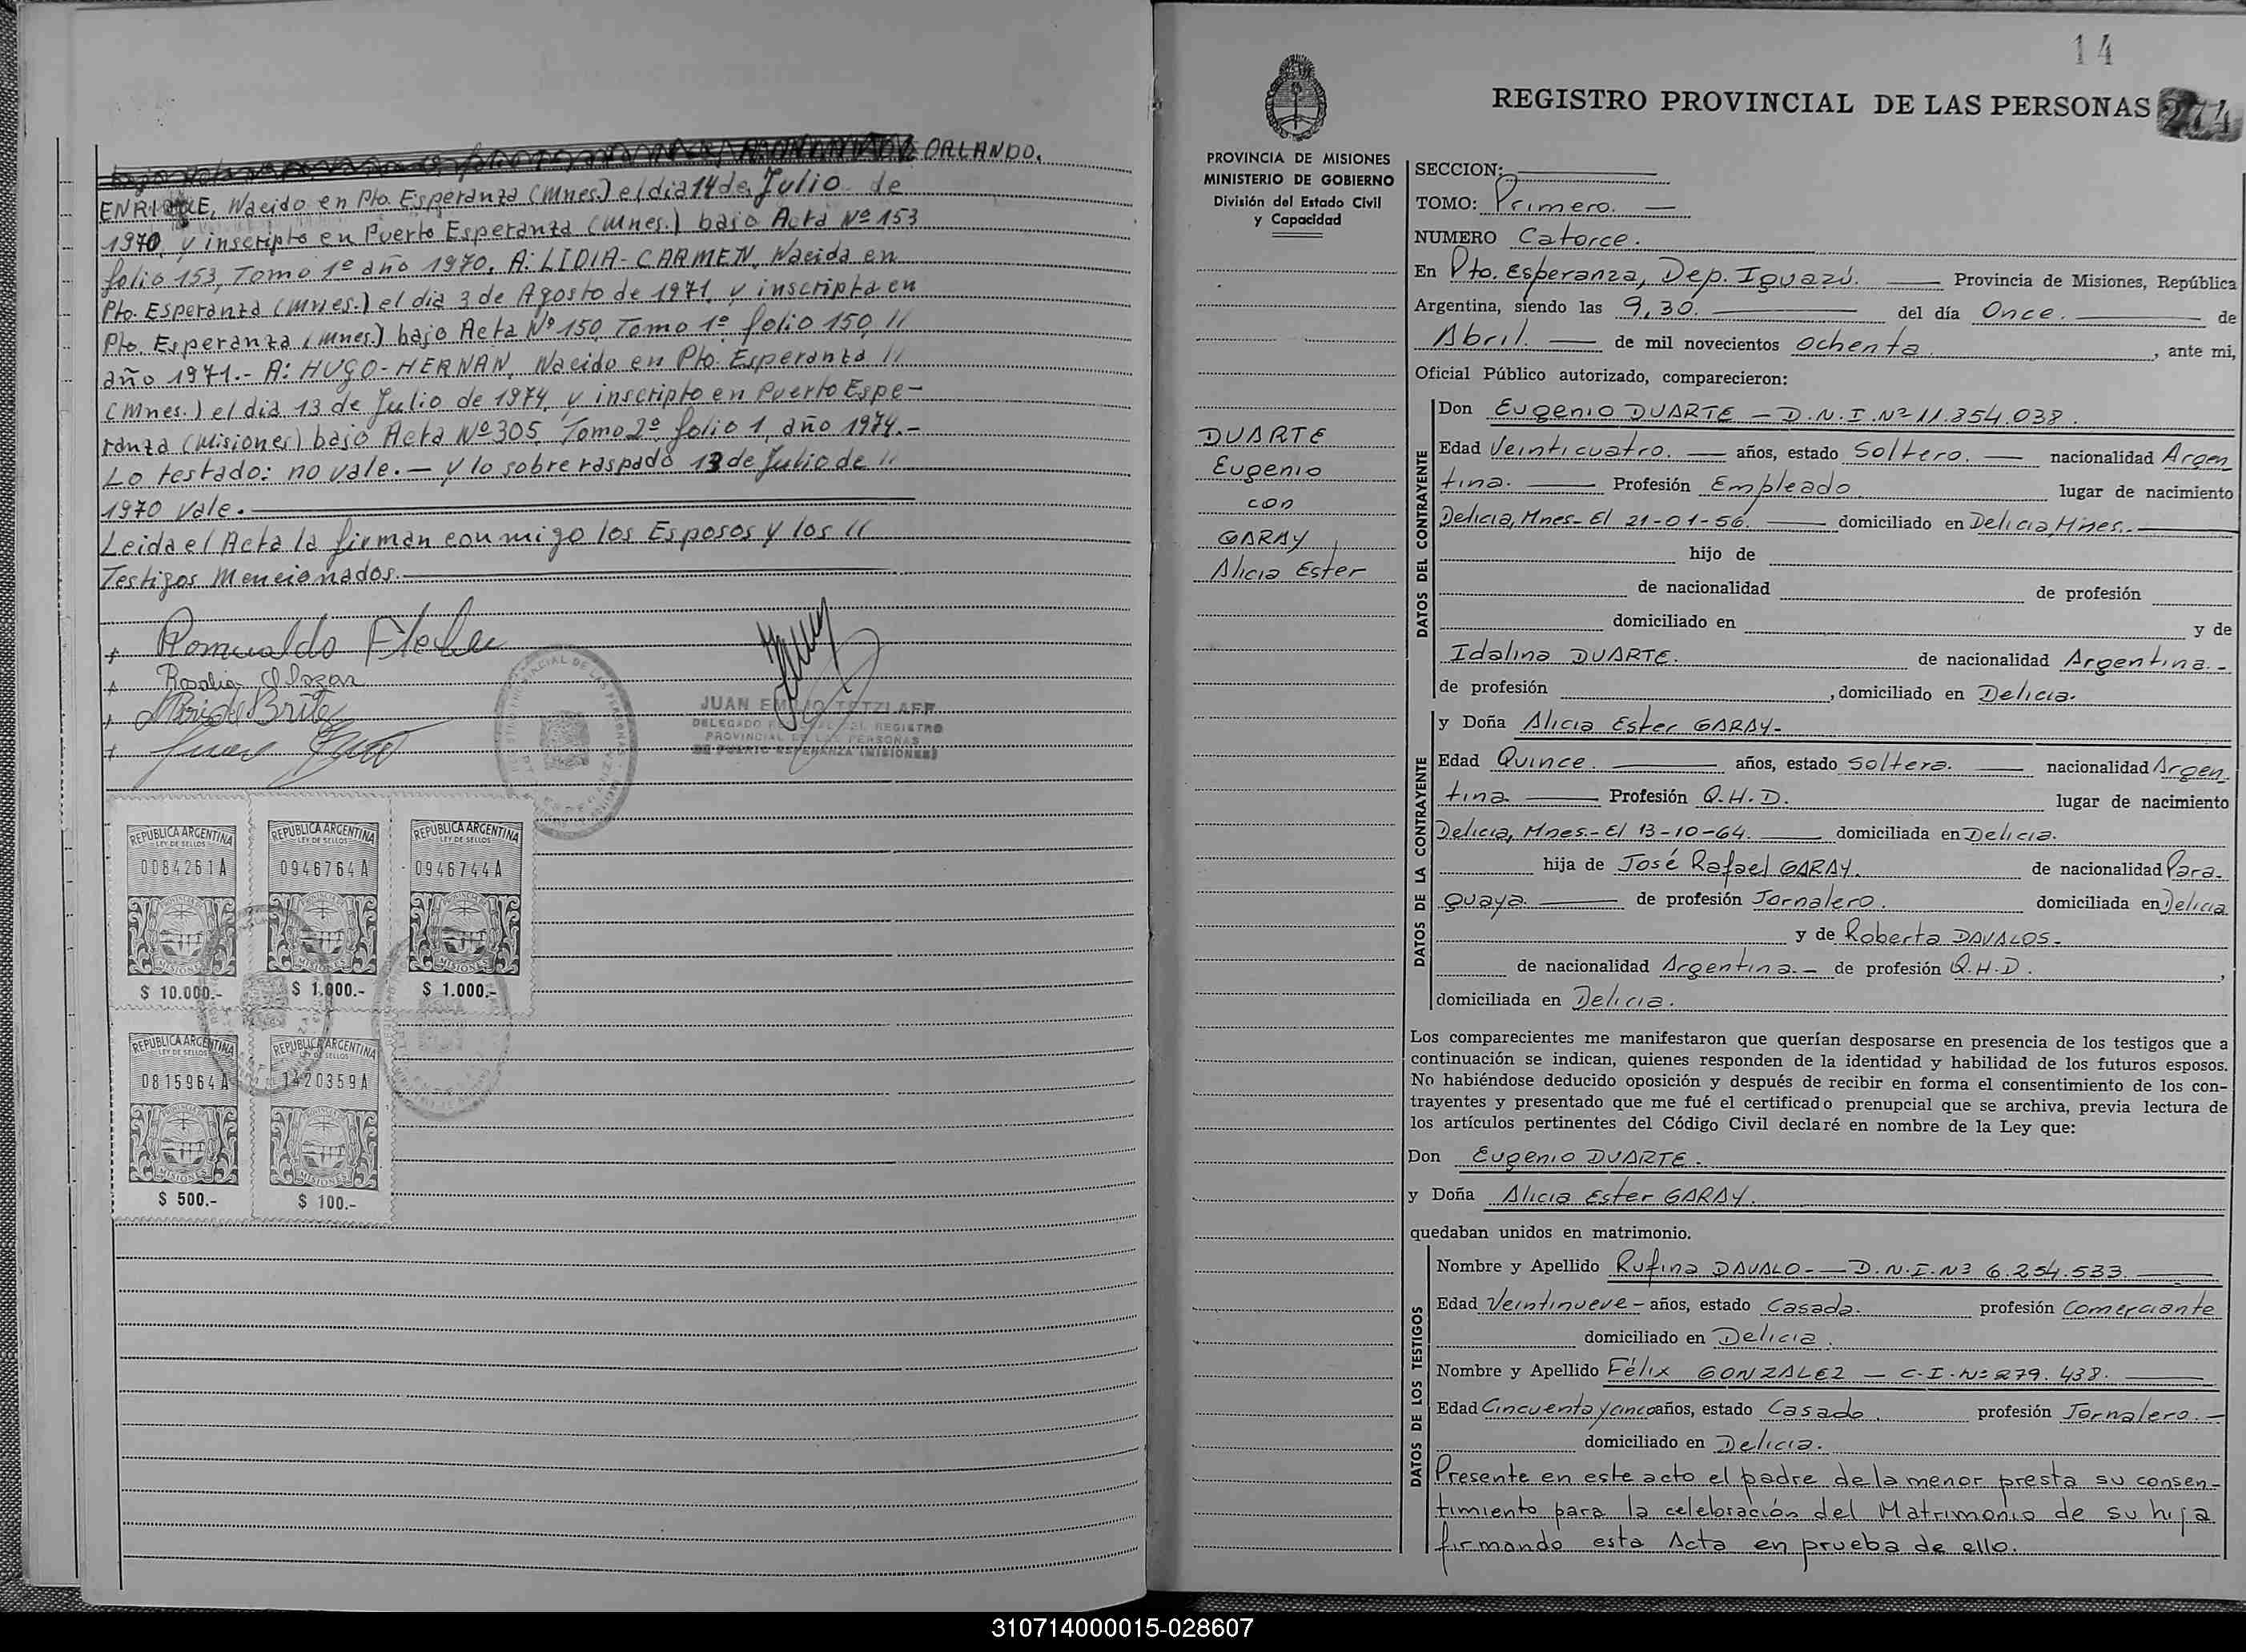 ORLANDO.
ENRIQUE, Nacido en Pto. Esperanza (Mnes.) el dia 14 de Julio de
1970, y inscripto en Puerto Esperanza (Mnes.) bajo Acta Nº 153
folio 153, Tomo 1º año 1970. A: LIDIA-CARMEN, Nacida en
Pto. Esperanza (Mnes.) el dia 3 de Agosto de 1971, y inscripta en
Pto. Esperanza (Mnes.) bajo Acta Nº 150, Tomo 1º folio 150, //
año 1971.- A: HUGO-HERNAN, Nacido en Pto. Esperanza //
(Mnes.) el dia 13 de Julio de 1974, y inscripto en Puerto Espe-
ranza (Misiones) bajo Acta Nº 305, Tomo 2º folio 1, año 1974.-
Lo testado: no vale.- y lo sobre raspado 13 de Julio de //
1970 vale.
Leida el Acta la firman conmigo los Esposos y los //
Testigos Mencionados.
Romualdo
Rosalia
JUAN EMILIO TETZLAFF
DELEGADO DEL REGISTRO
PROVINCIAL DE LAS PERSONAS
DE PUERTO ESPERANZA (MISIONES)
REPUBLICA ARGENTINA REPUBLICA ARGENTINA REPUBLICA ARGENTINA
LEY DE SELLOS LEY DE SELLOS LEY DE SELLOS
0084261A 0946764A 0946744A
MISIONES MISIONES MISIONES
$ 10.000.- $ 1.000.- $ 1.000.-
REPUBLICA ARGENTINA REPUBLICA ARGENTINA
LEY DE SELLOS LEY DE SELLOS
0815964A 1420359A
MISIONES MISIONES
$ 500.- $ 100.-
14
REGISTRO PROVINCIAL DE LAS PERSONAS 274
PROVINCIA DE MISIONES
MINISTERIO DE GOBIERNO
División del Estado Civil
y Capacidad
DUARTE
Eugenio
con
GARAY
Alicia Ester
SECCION:
TOMO: Primero.
NUMERO Catorce.
En Pto. Esperanza, Dep. Iguazú. Provincia de Misiones, República
Argentina, siendo las 9,30. del día Once. de
Abril. de mil novecientos ochenta, ante mi,
Oficial Público autorizado, comparecieron:
DATOS DEL CONTRAYENTE
Don Eugenio DUARTE - D.N.I.Nº 11.854.038.
Edad Veinticuatro. años, estado Soltero. nacionalidad Argen
tina. Profesión Empleado lugar de nacimiento
Delicia, Mnes- El 21-01-56. domiciliado en Delicia, Mnes.-
hijo de
de nacionalidad de profesión
domiciliado en y de
Idalina DUARTE. de nacionalidad Argentina.-
de profesión , domiciliado en Delicia.
DATOS DE LA CONTRAYENTE
y Doña Alicia Ester GARAY-
Edad Quince. años, estado soltera. nacionalidad Argen
tina Profesión Q.H.D. lugar de nacimiento
Delicia, Mnes.- El 13-10-64. domiciliada en Delicia.
hija de José Rafael GARAY. de nacionalidad Para-
guaya. de profesión Jornalero. domiciliada en Delicia
y de Roberta DAVALOS-
de nacionalidad Argentina.- de profesión Q.H.D. ,
domiciliada en Delicia.
Los comparecientes me manifestaron que querían desposarse en presencia de los testigos que a
continuación se indican, quienes responden de la identidad y habilidad de los futuros esposos.
No habiéndose deducido oposición y después de recibir en forma el consentimiento de los con-
trayentes y presentado que me fué el certificado prenupcial que se archiva, previa lectura de
los artículos pertinentes del Código Civil declaré en nombre de la Ley que:
Don Eugenio DUARTE.
y Doña Alicia Ester GARAY.
quedaban unidos en matrimonio.
DATOS DE LOS TESTIGOS
Nombre y Apellido Rufina DAVALO- D.N.I.Nº 6.254.533.
Edad Veintinueve- años, estado Casada. profesión Comerciante
domiciliado en Delicia.
Nombre y Apellido Félix GONZALEZ - C.I.Nº 279.438.
Edad Cincuenta y cinco años, estado Casado. profesión Jornalero.-
domiciliado en Delicia.
Presente en este acto el padre de la menor presta su consen-
timiento para la celebración del Matrimonio de su hija
firmando esta Acta en prueba de ello.
310714000015-028607